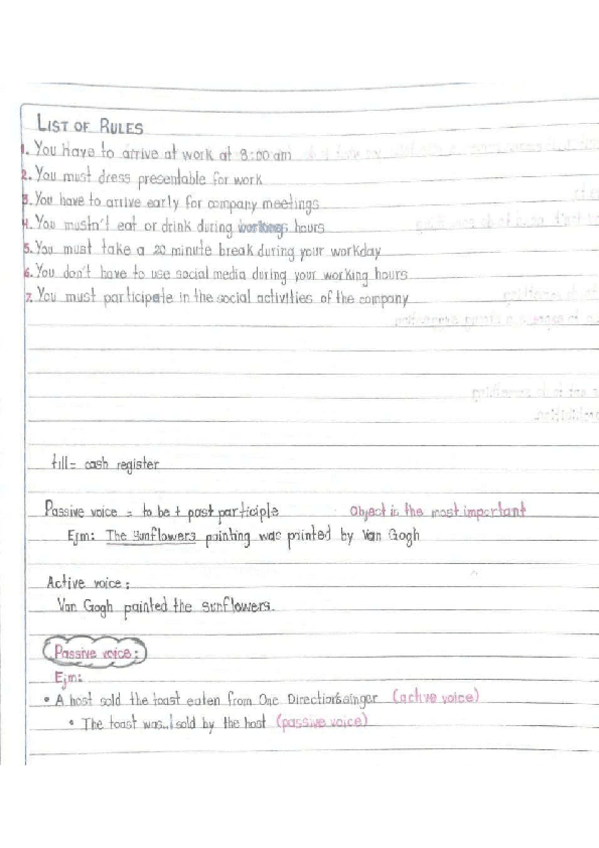 LIST OF RULES
1. You have to arrive at work at 8:00 am
2. You must dress presentable for work
3. You have to arrive early for company meetings
4. You mustn't eat or drink during hours
5. You must take a 20 minute break during your workday
6. You don't have to use social media during your working hours
7. You must participate in the social activities of the company
till= cash register
Passive voice = to be + past participle Object is the most important
Ejm: The sunflowers painting was painted by Van Gogh
Active voice:
Van Gogh painted the sunflowers.
Passive voice:
Ejm:
• A host sold the toast eaten from One singer (active voice)
• The toast was sold by the host (passive voice)